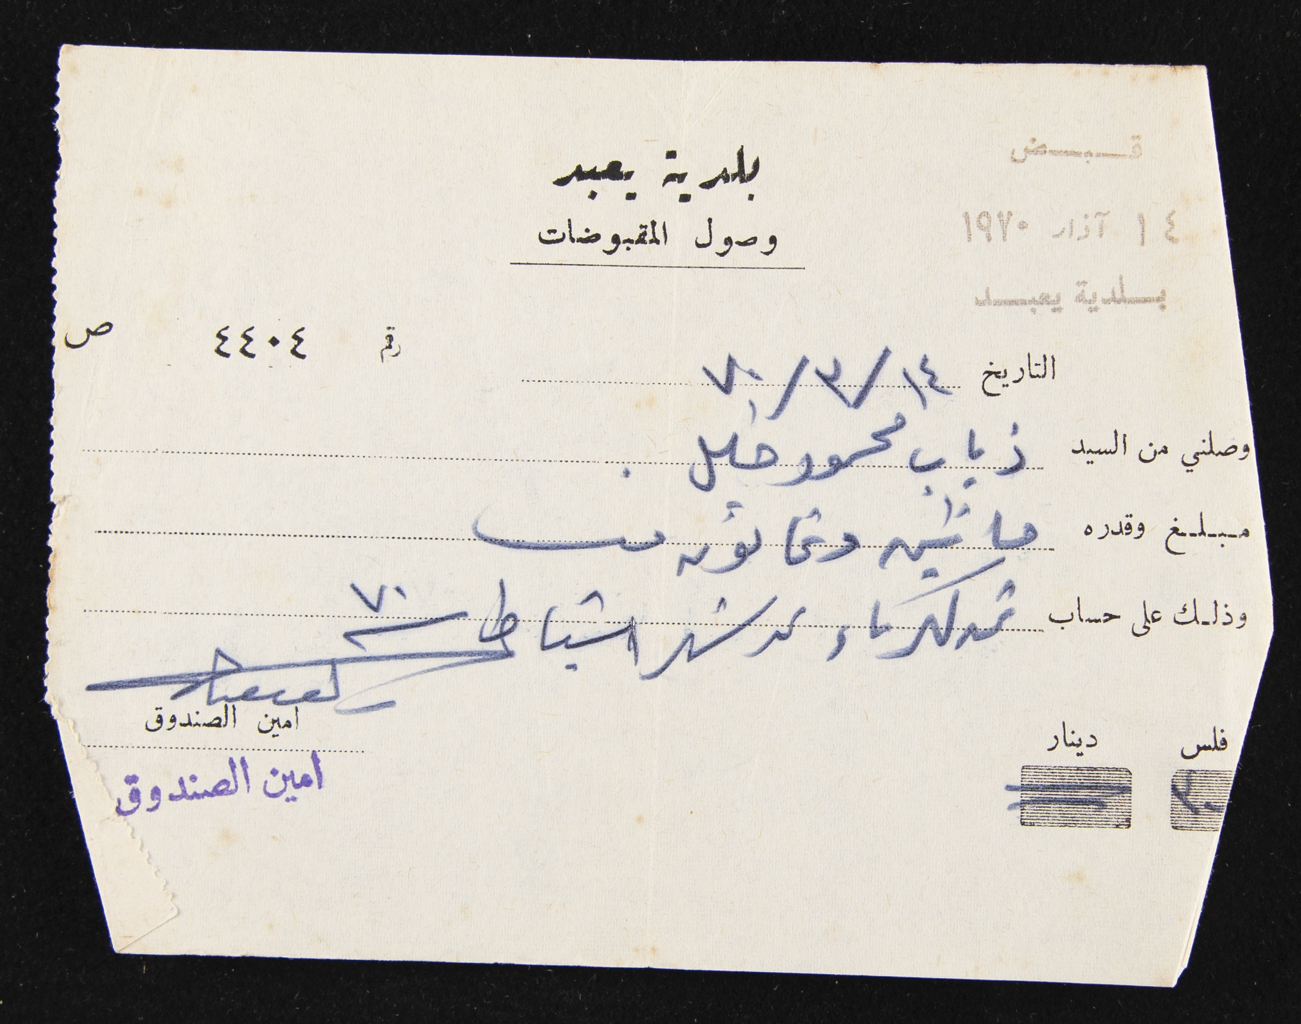 قبض
١٤ آذار ١٩٧٠
بلدية يعبد
بلدية يعبد
وصول المقبوضات
رقم ٤٤٠٤ ص
التاريخ ١٤/٣/٧٠
وصلني من السيد ذياب محمود خليل
مبلغ وقدره مائتين وثمانون فلس
وذلك على حساب ثمن كهرباء عن شهر اشباط سنة ٧٠
امين الصندوق
امين الصندوق
فلس دينار